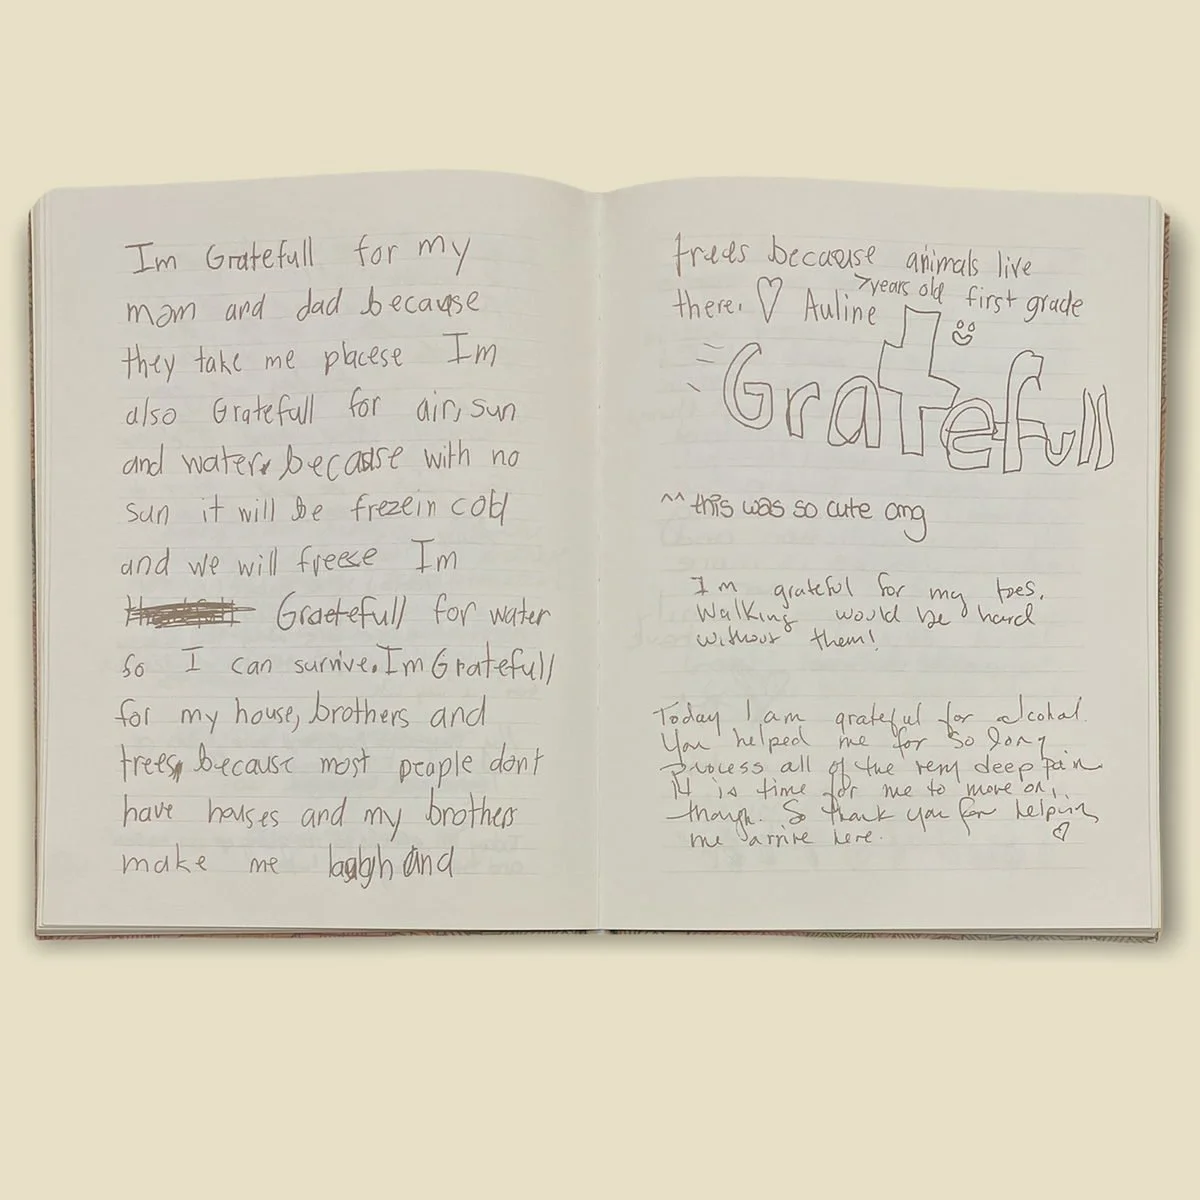 Im Gratefull for my
mom and dad because
they take me placese Im
also Gratefull for air, sun
and water. because with no
sun it will be frezein cold
and we will freese Im
Graetefull for water
so I can survive. Im Gratefull
for my house, brothers and
trees, because most people don't
have houses and my brothers
make me laugh and
trees because animals live
there. ♡ Auline 7 years old first grade
Gratefull
^^ this was so cute omg
I'm grateful for my toes.
Walking would be hard
without them!
Today I am grateful for alcohol.
You helped me for so long
process all of the very deep pain.
It is time for me to move on,
though. So thank you for helping
me arrive here. ♡